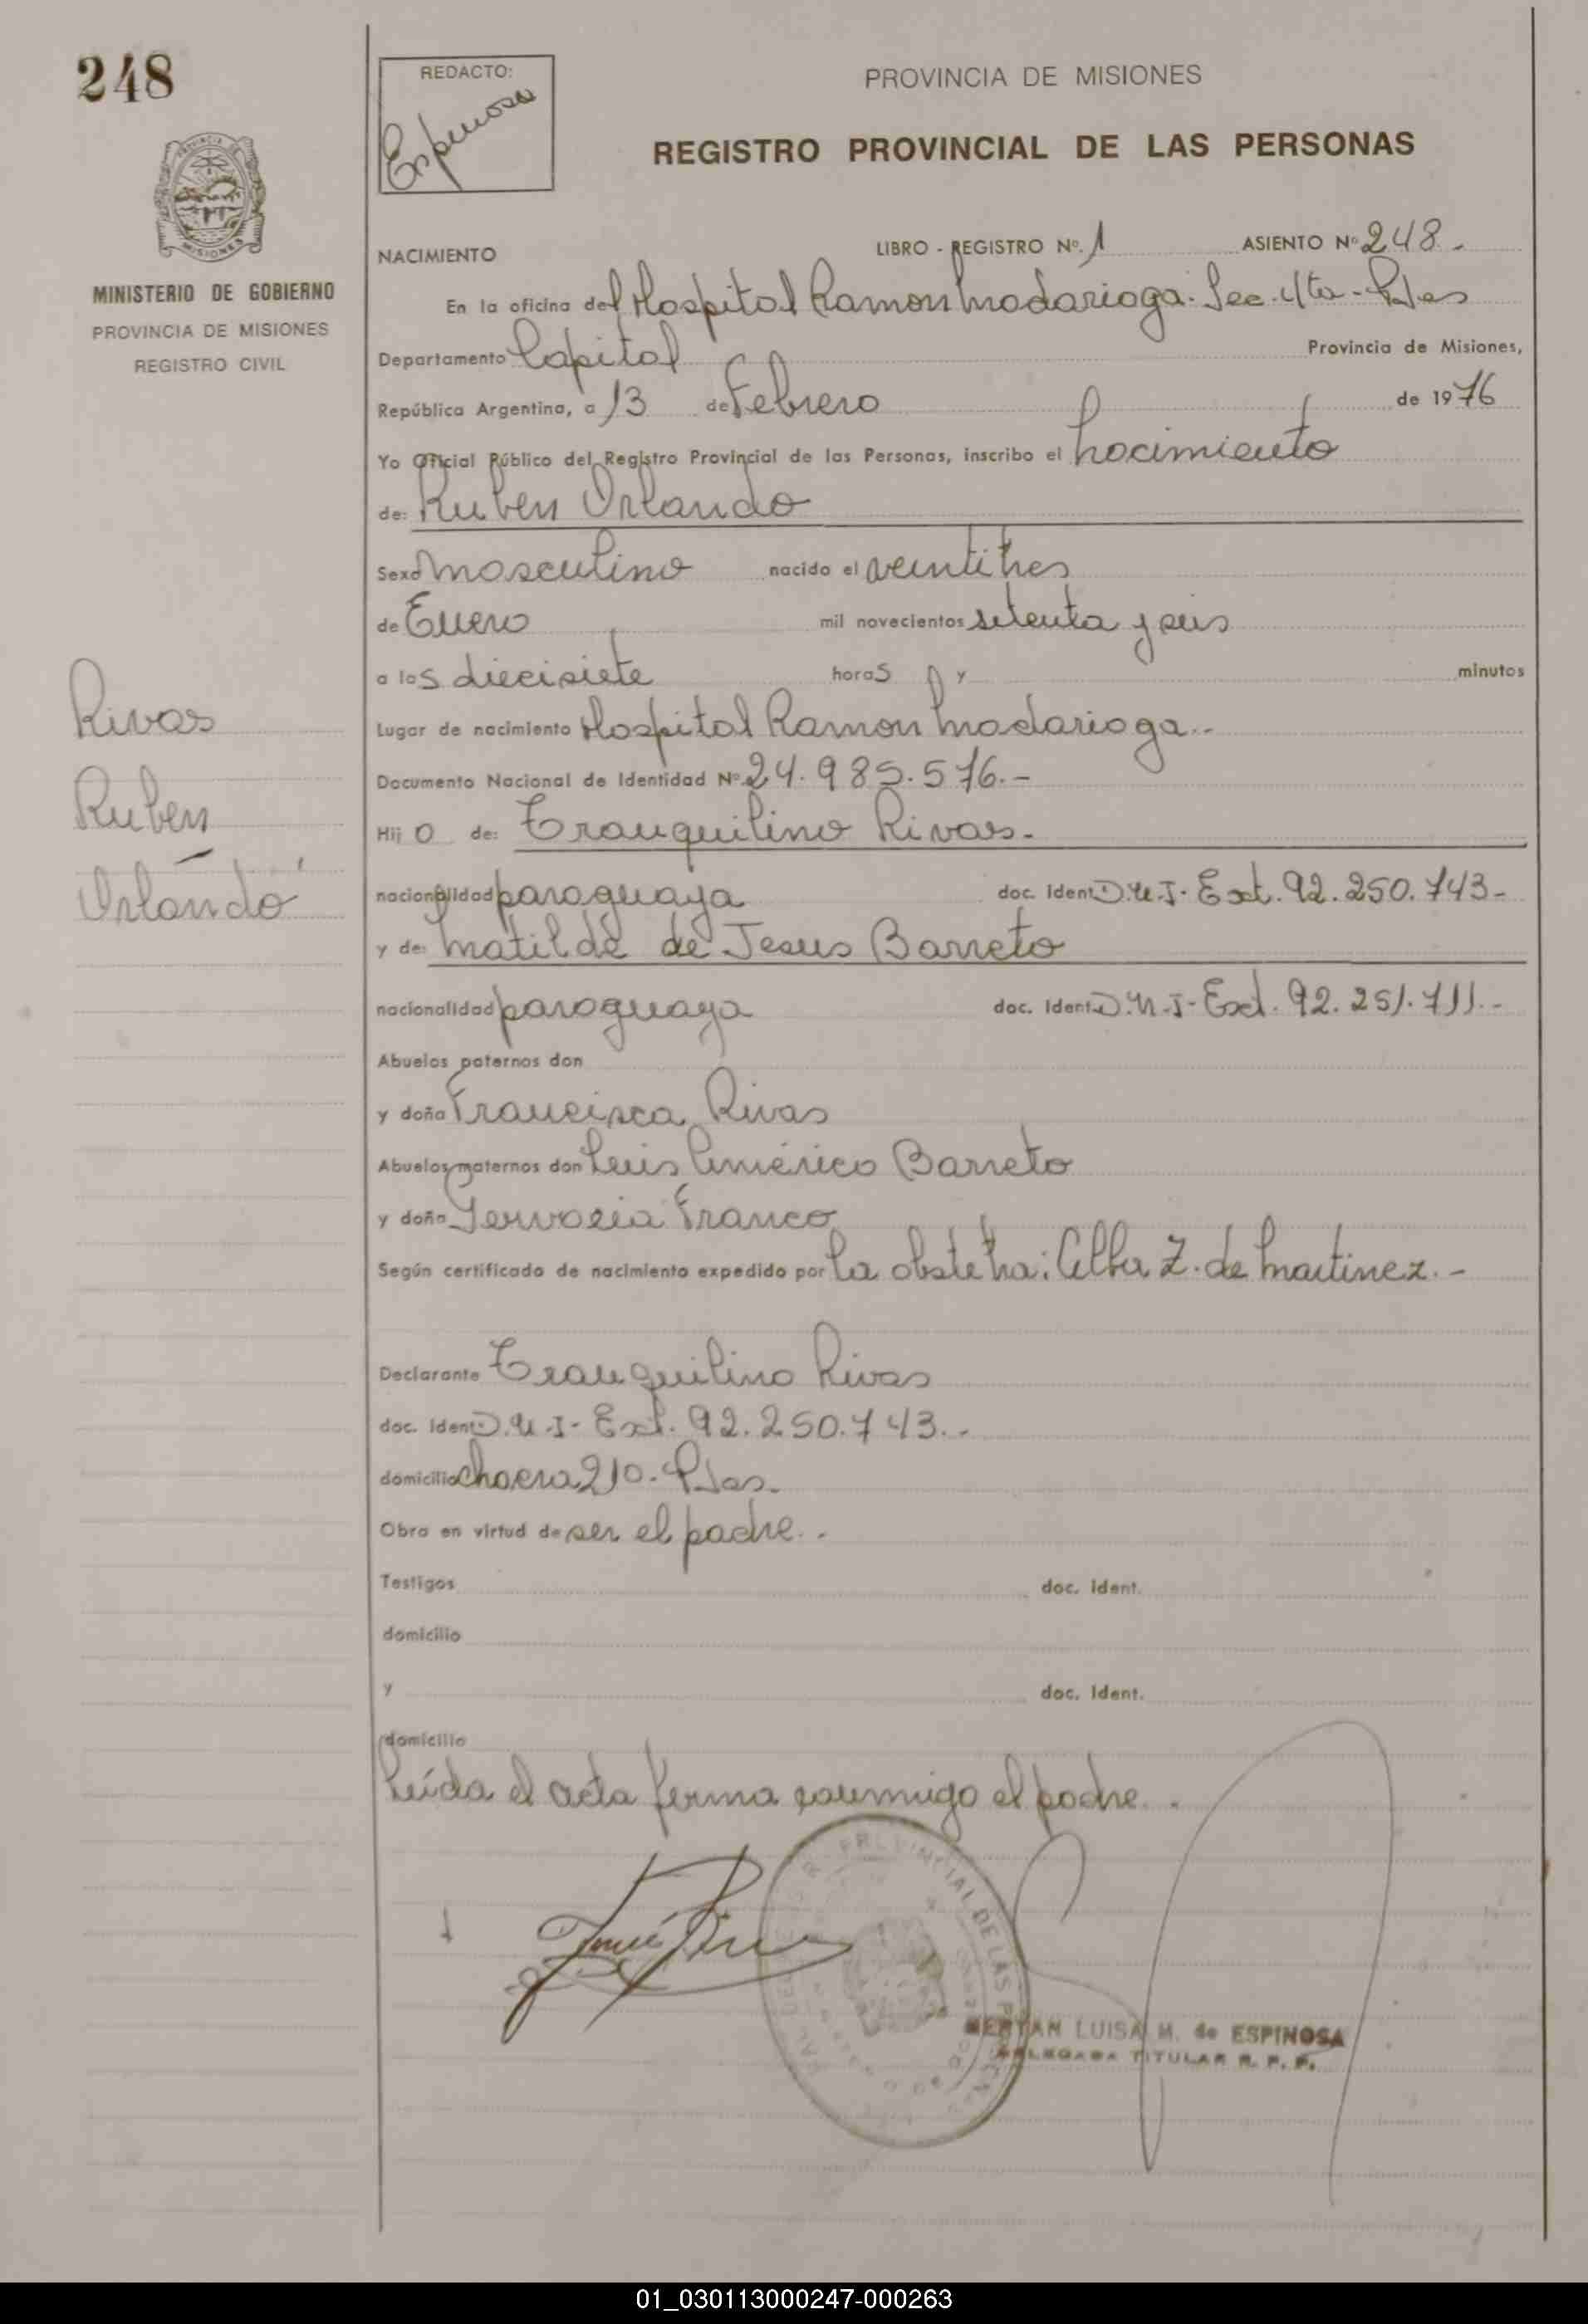 248
REDACTO:
Espinosa
PROVINCIA DE MISIONES
REGISTRO PROVINCIAL DE LAS PERSONAS
MISIONES
MINISTERIO DE GOBIERNO
PROVINCIA DE MISIONES
REGISTRO CIVIL
NACIMIENTO LIBRO - REGISTRO Nº. 1 ASIENTO Nº 248.-
En la oficina del Hospital Ramon Madariaga. Sec. 4ta - Pdas
Departamento Capital Provincia de Misiones,
República Argentina, a 13 de Febrero de 1976
Yo Oficial Público del Registro Provincial de las Personas, inscribo el nacimiento
de: Ruben Orlando
Sexo masculino nacido el veintitres
de Enero mil novecientos setenta y seis
a las diecisiete horas y minutos
Lugar de nacimiento Hospital Ramon Madariaga.-
Documento Nacional de Identidad Nº 24.985.576.-
Hijo de: Tranquilino Rivas.-
nacionalidad paraguaya doc. Ident. D.N.I- Ext. 92.250.743-
y de: Matilde de Jesus Barreto
nacionalidad paraguaya doc. Ident. D.N.I- Ext. 92.251.711.-
Abuelos paternos don
y doña Francisca Rivas
Abuelos maternos don Luis Américo Barreto
y doña Gervacia Franco
Según certificado de nacimiento expedido por la obstetra: Alba Z. de Martinez.-
Declarante Tranquilino Rivas
doc. Ident. D.N.I- Ext. 92.250.743.-
domicilio chacra 210.- Pdas.
Obra en virtud de ser el padre.-
Testigos doc. Ident.
domicilio
y doc. Ident.
domicilio
Leída el acta firma conmigo el padre.-
Rivas
Ruben
Orlando
PROVINCIAL DE LAS
LUISA M. de ESPINOSA
DELEGADA TITULAR R. P. P.
01_030113000247-000263